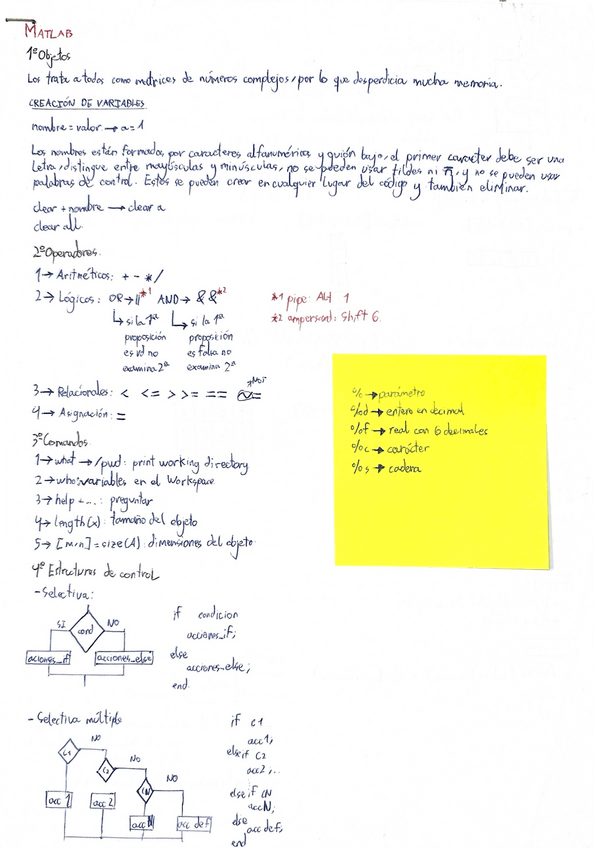 MATLAB
1º Objetos
Los trata a todos como matrices de números complejos, por lo que desperdicia mucha memoria.
CREACIÓN DE VARIABLES
nombre = valor → a = 1
Los nombres están formados por caracteres alfanuméricos y guión bajo, el primer carácter debe ser una
letra, distingue entre mayúsculas y minúsculas, no se pueden usar tildes ni ñ, y no se pueden usar
palabras de control. Estos se pueden crear en cualquier lugar del código y también eliminar.
clear + nombre → clear a
clear all
2º Operadores
1→ Aritméticos: + - * /
2→ Lógicos: OR → || *1 AND → && *2
*1 pipe: Alt 1
*2 ampersand: Shift 6
↳ si la 1ª ↳ si la 1ª
proposición proposición
es vd no es falsa no
examina 2ª examina 2ª
3→ Relacionales: < <= > >= == ~= *NOT
4→ Asignación: =
% → parámetro
%d → entero en decimal
%f → real con 6 decimales
%c → carácter
%s → cadena
3º Comandos
1→ what → /pwd: print working directory
2→ who: variables en el Workspace
3→ help + ...: preguntar
4→ length(x): tamaño del objeto
5→ [m,n] = size(A): dimensiones del objeto
4º Estructuras de control
- Selectiva:
SI cond NO
acciones_if acciones_else
if condicion
acciones_if;
else
acciones_else;
end
- Selectiva múltiple
C1 NO
C2 NO
CN NO
acc 1 acc 2 acc N acc def
if c1
acc1;
elseif c2
acc2;..
elseif cN
accN;
else
acc def;
end